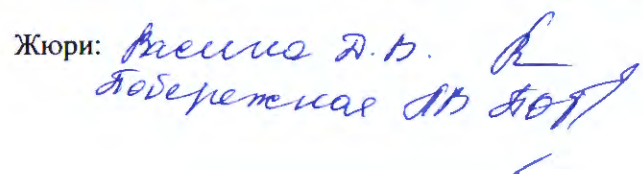 Жюри: Васина Д.В.
Побережная АВ